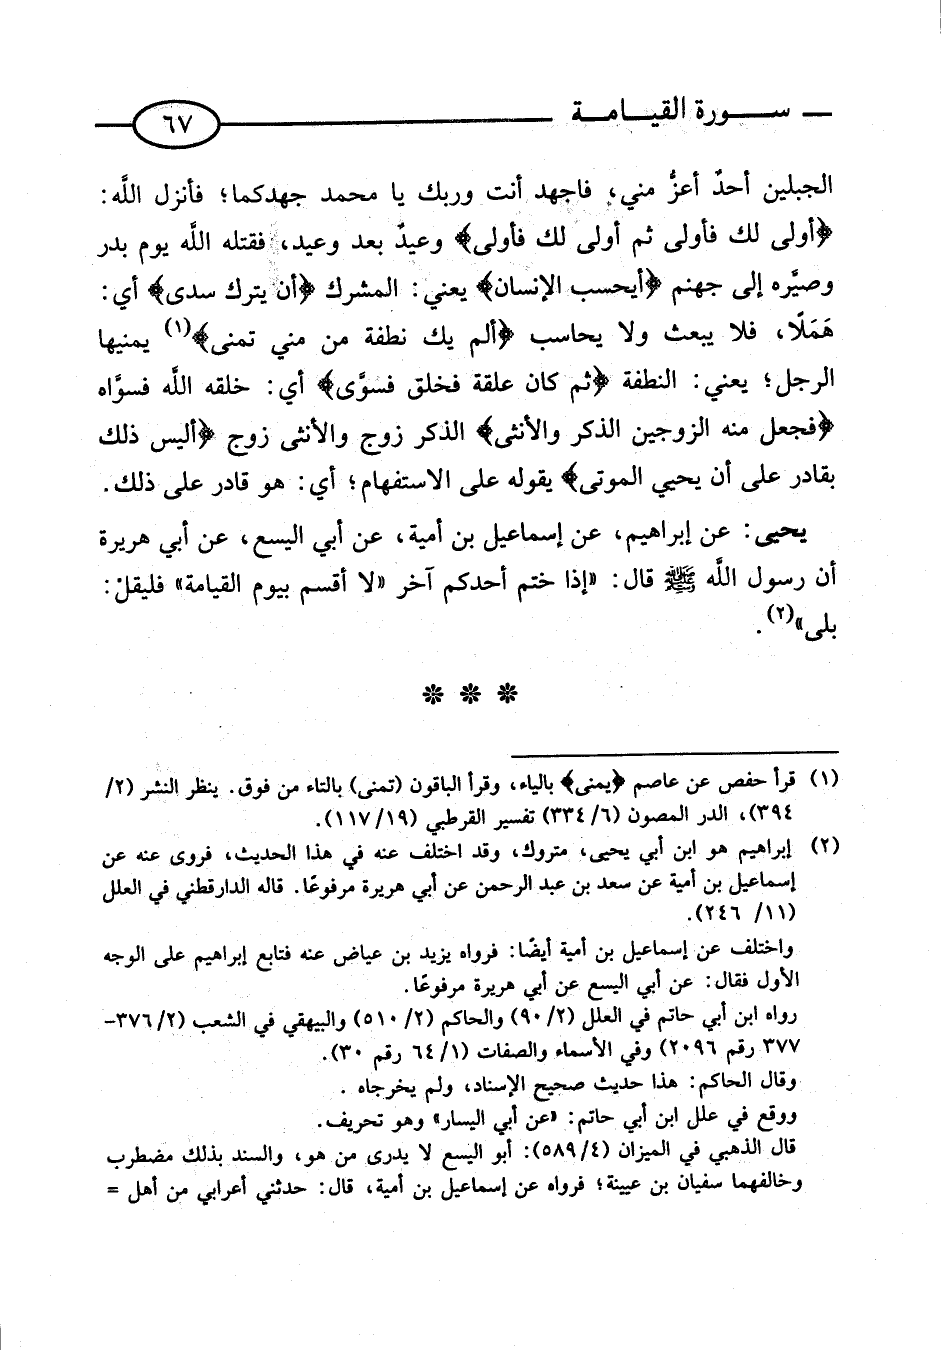 سـورة القيـامـة ٦٧
الجبلين أحدٌ أعزُّ مني، فاجهد أنت وربك يا محمد جهدكما؛ فأنزل اللَّه:
﴿أولى لك فأولى ثم أولى لك فأولى﴾ وعيدٌ بعد وعيد، فقتله اللَّه يوم بدر
وصيَّره إلى جهنم ﴿أيحسب الإنسان﴾ يعني: المشرك ﴿أن يترك سدى﴾ أي:
هَمَلًا، فلا يبعث ولا يحاسب ﴿ألم يك نطفة من مني تمنى﴾(١) يمنيها
الرجل؛ يعني: النطفة ﴿ثم كان علقة فخلق فسوَّى﴾ أي: خلقه اللَّه فسوَّاه
﴿فجعل منه الزوجين الذكر والأنثى﴾ الذكر زوج والأنثى زوج ﴿أليس ذلك
بقادر على أن يحيي الموتى﴾ يقوله على الاستفهام؛ أي: هو قادر على ذلك.
يحيى: عن إبراهيم، عن إسماعيل بن أمية، عن أبي اليسع، عن أبي هريرة
أن رسول اللَّه ﷺ قال: «إذا ختم أحدكم آخر «لا أقسم بيوم القيامة» فليقلْ:
بلى»(٢).
* * *
(١) قرأ حفص عن عاصم ﴿يمنى﴾ بالياء، وقرأ الباقون (تمنى) بالتاء من فوق. ينظر النشر (٢/
٣٩٤)، الدر المصون (٦/ ٣٣٤) تفسير القرطبي (١٩/ ١١٧).
(٢) إبراهيم هو ابن أبي يحيى، متروك، وقد اختلف عنه في هذا الحديث، فروى عنه عن
إسماعيل بن أمية عن سعد بن عبد الرحمن عن أبي هريرة مرفوعًا. قاله الدارقطني في العلل
(١١/ ٢٤٦).
واختلف عن إسماعيل بن أمية أيضًا: فرواه يزيد بن عياض عنه فتابع إبراهيم على الوجه
الأول فقال: عن أبي اليسع عن أبي هريرة مرفوعًا.
رواه ابن أبي حاتم في العلل (٢/ ٩٠) والحاكم (٢/ ٥١٠) والبيهقي في الشعب (٢/ ٣٧٦-
٣٧٧ رقم ٢٠٩٦) وفي الأسماء والصفات (١/ ٦٤ رقم ٣٠).
وقال الحاكم: هذا حديث صحيح الإسناد، ولم يخرجاه .
ووقع في علل ابن أبي حاتم: «عن أبي اليسار» وهو تحريف.
قال الذهبي في الميزان (٤/ ٥٨٩): أبو اليسع لا يدرى من هو، والسند بذلك مضطرب
وخالفهما سفيان بن عيينة؛ فرواه عن إسماعيل بن أمية، قال: حدثني أعرابي من أهل =